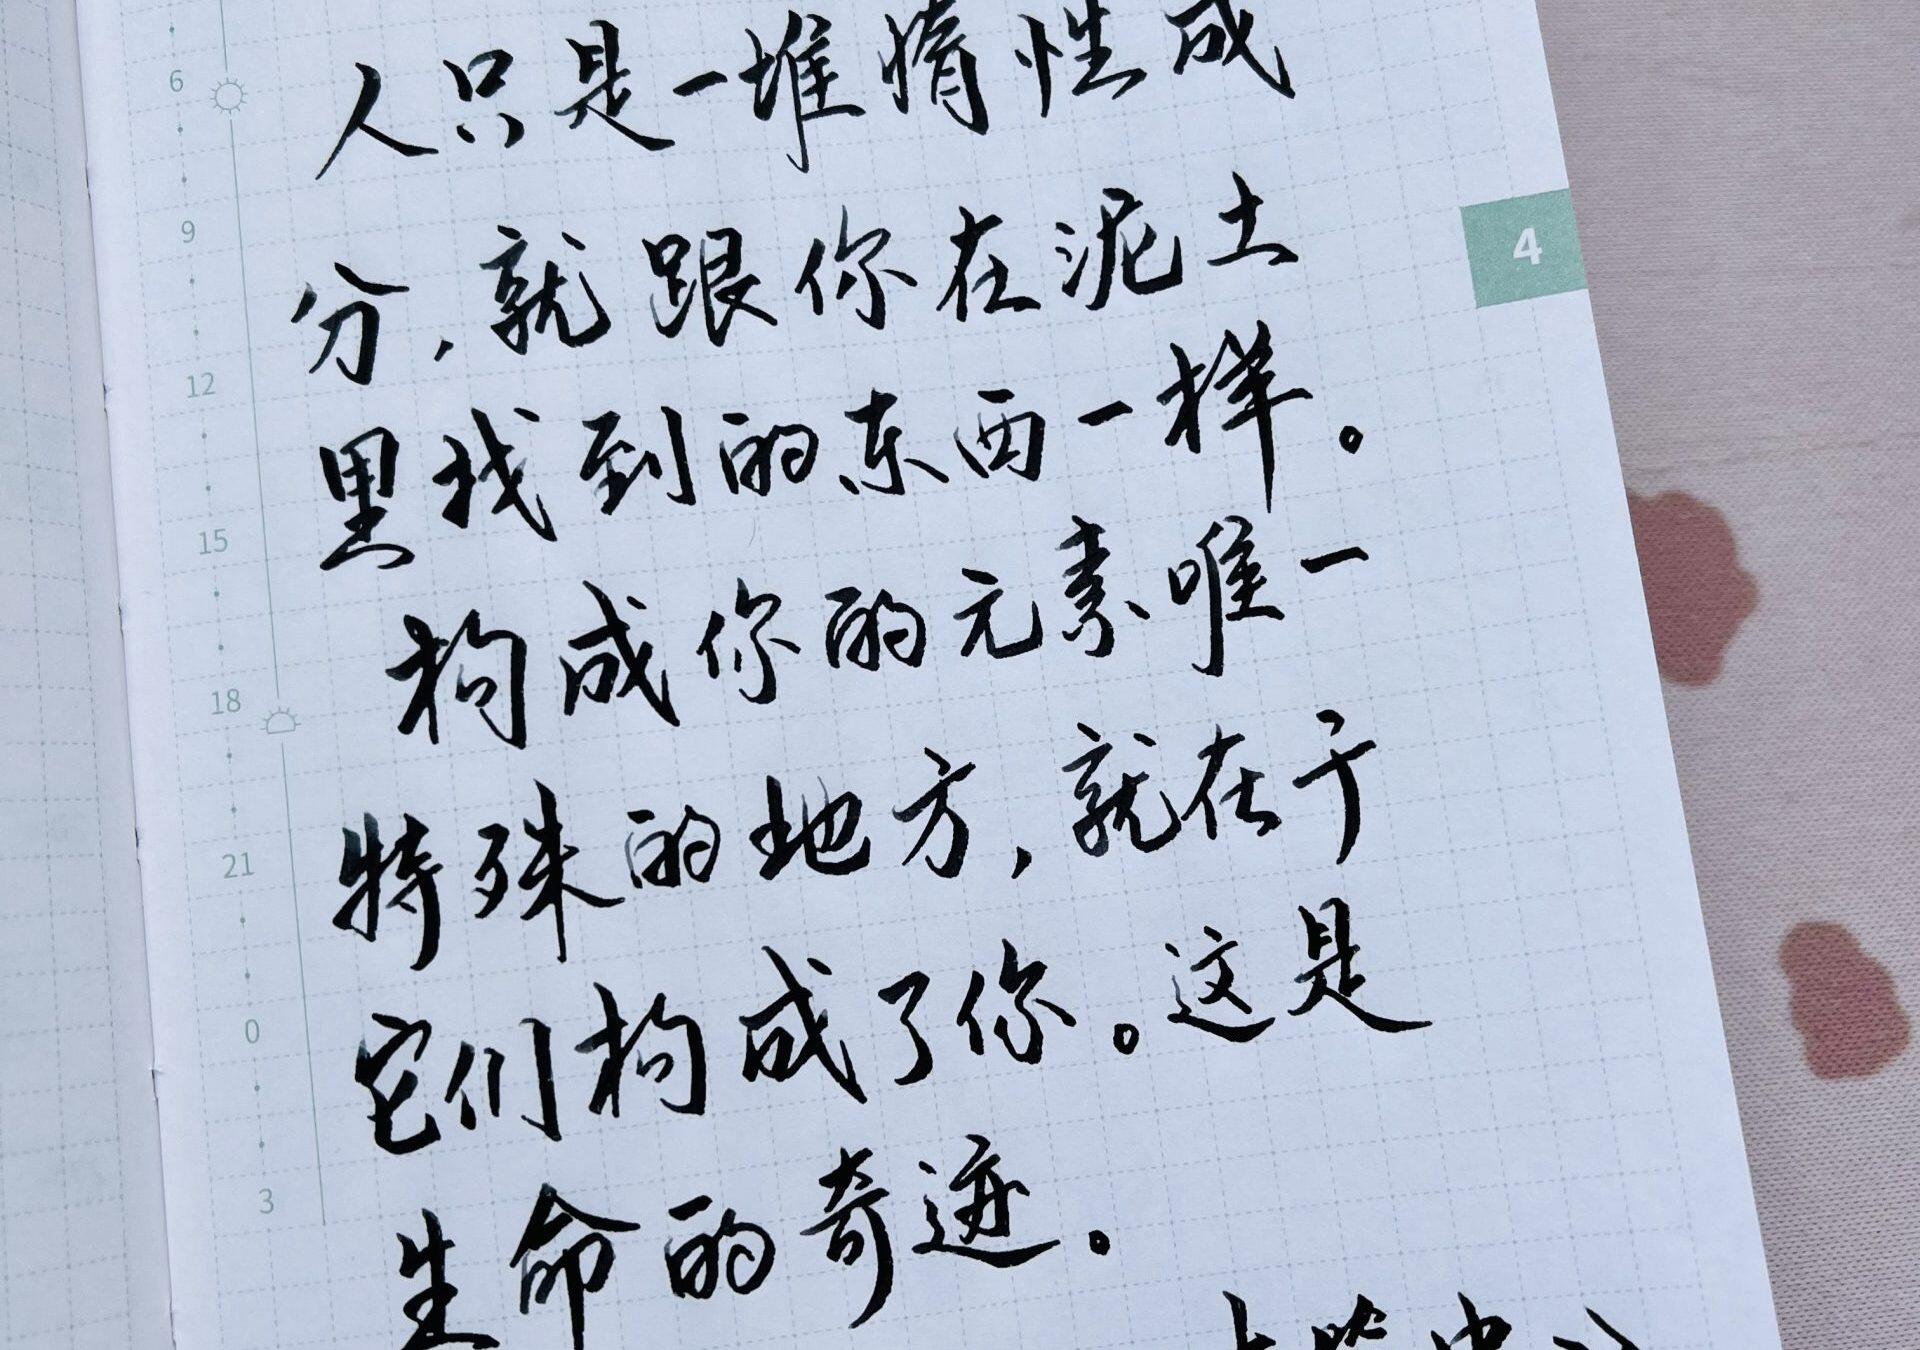 人只是一堆惰性成
分,就跟你在泥土
里找到的东西一样。
构成你的元素唯一
特殊的地方,就在于
它们构成了你。这是
生命的奇迹。
6
9
12
15
18
21
0
3
4